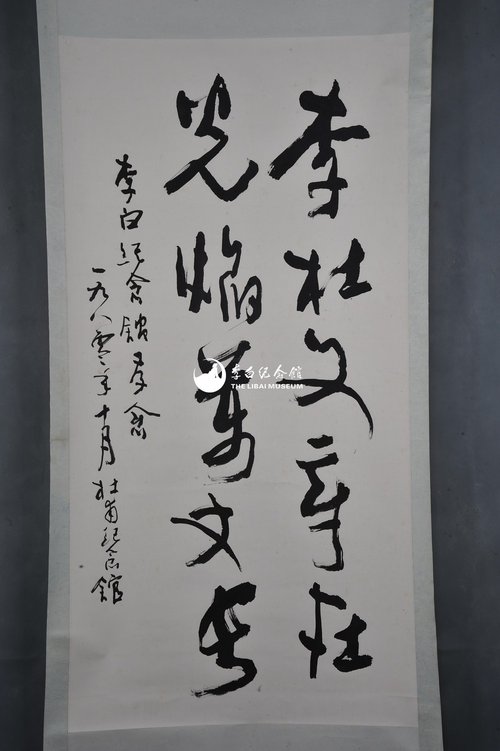 李杜文章在
光焰萬丈長
李白紀念館存念
一九八零年十月 杜甫紀念館
李白纪念館
THE LIBAI MUSEUM